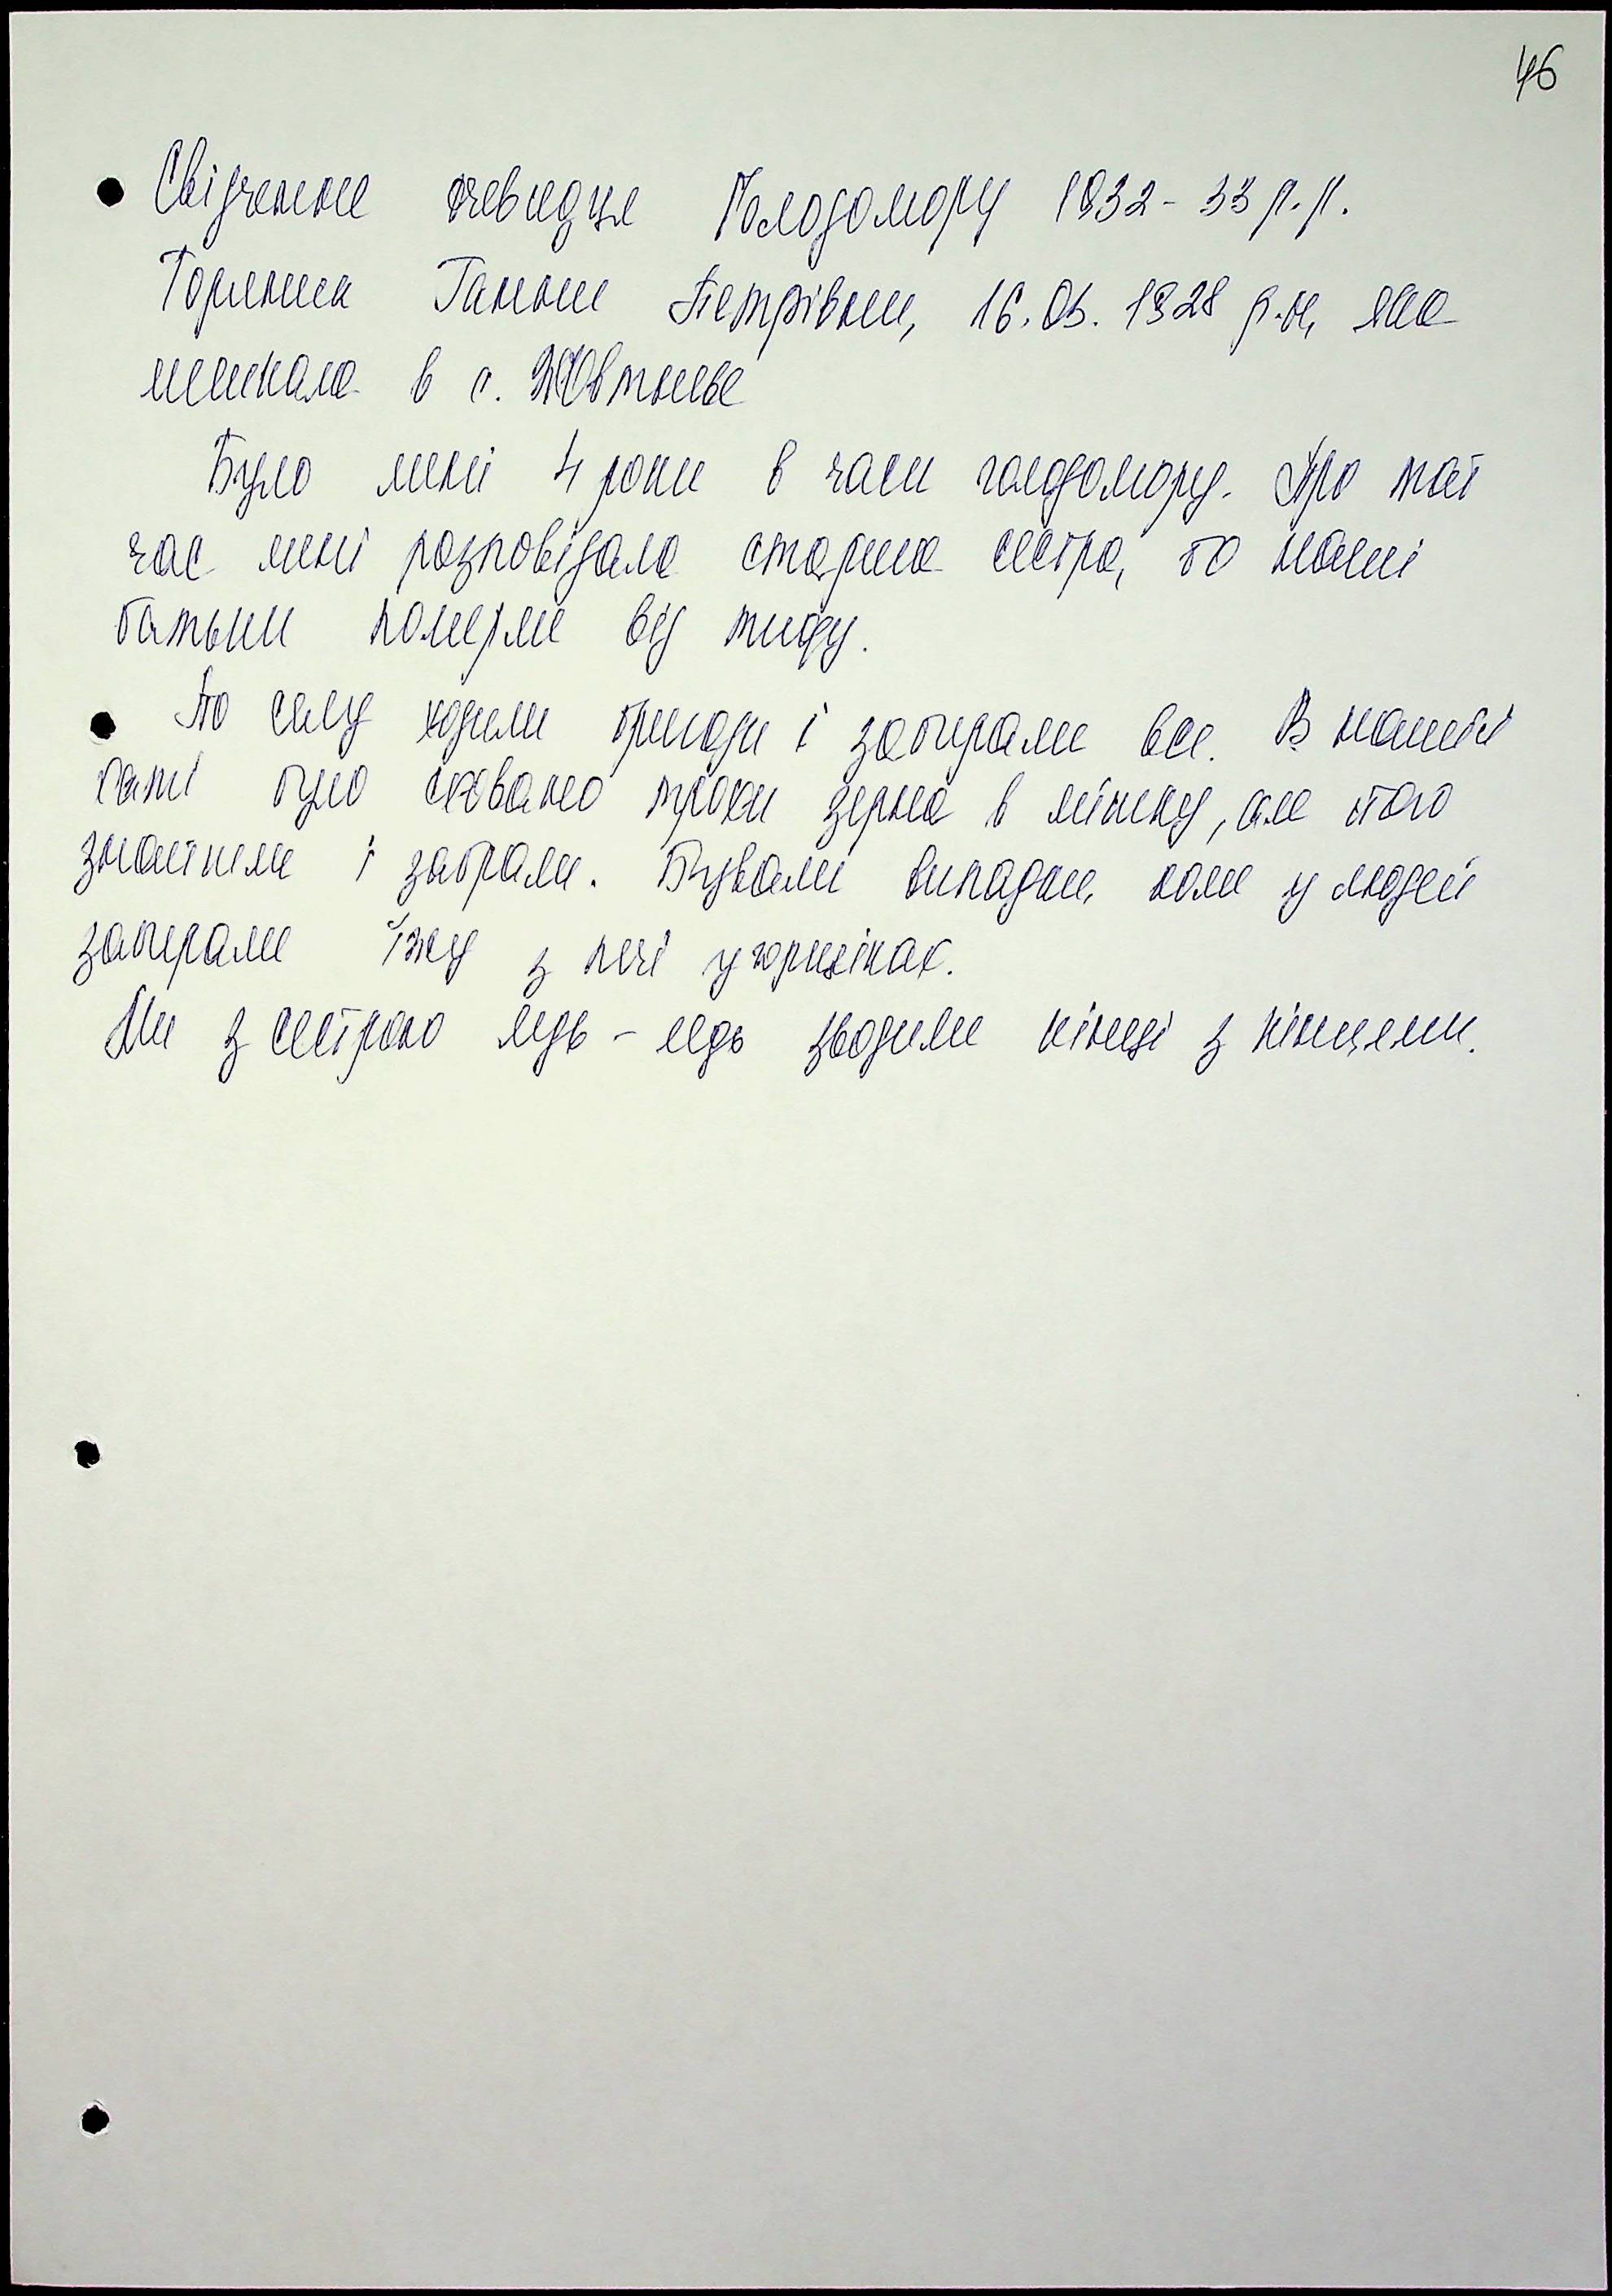 46
Свідчення очевидця Голодомору 1932-33 р.р.
Горяник Ганни Петрівни, 16.05.1928 р.н, яка
мешкала в с. Жовтневе
Було мені 4 роки в часи голодомору. Про той
час мені розповідала старша сестра, бо наші
батьки померли від тифу.
По селу ходили бригади і забирали все. В нашій
хаті було сховано трохи зерна в мішку, але його
знайшли і забрали. Бували випадки, коли у людей
забирали їжу з печі у горщиках.
Ми з сестрою ледь - ледь зводили кінці з кінцями.